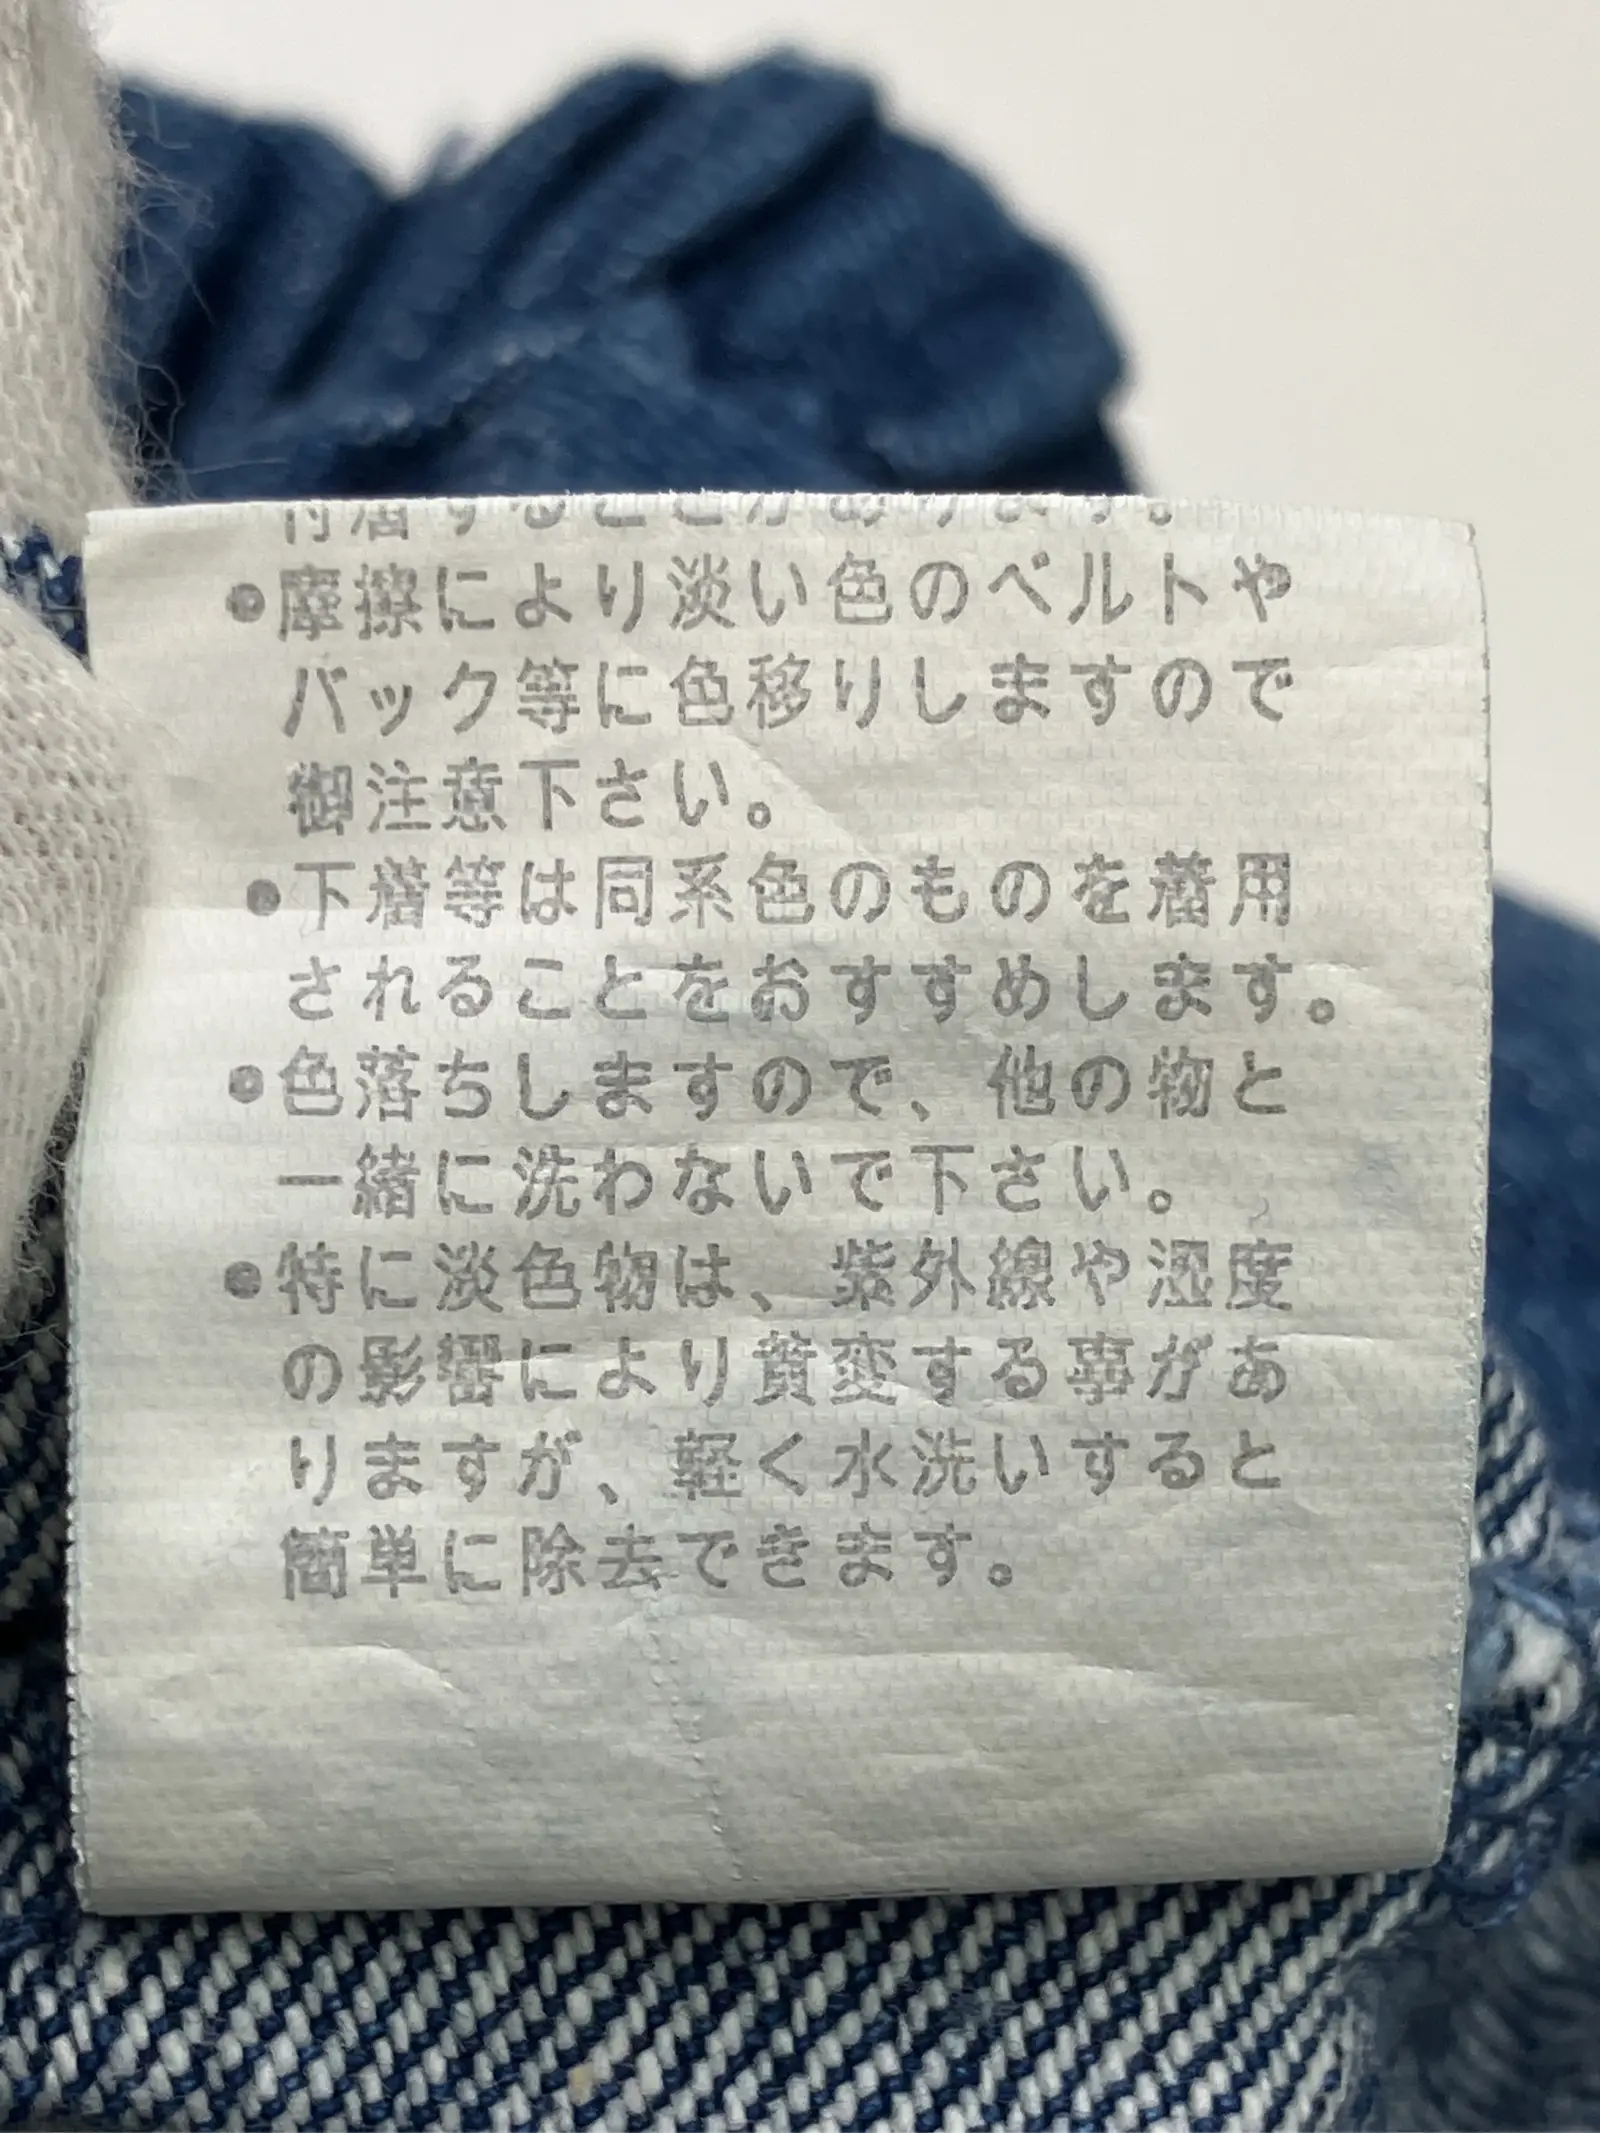 付着することがあります。
●摩擦により淡い色のベルトや
バック等に色移りしますので
御注意下さい。
●下着等は同系色のものを着用
されることをおすすめします。
●色落ちしますので、他の物と
一緒に洗わないで下さい。
●特に淡色物は、紫外線や湿度
の影響により黄変する事があ
りますが、軽く水洗いすると
簡単に除去できます。